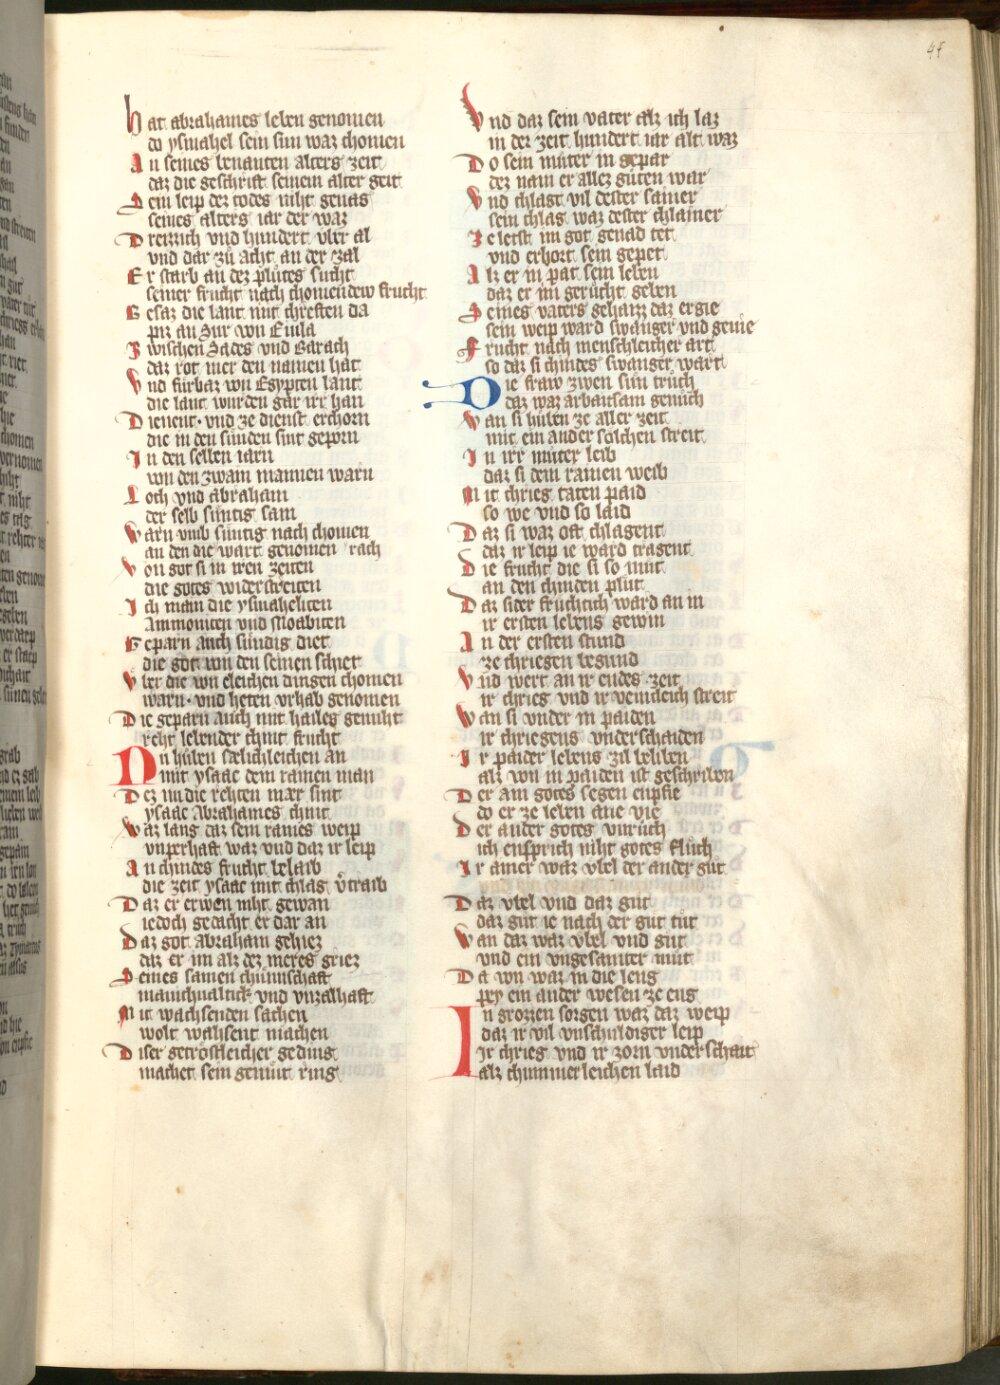 47
hat abrahames leben genomen
do ysmahel sein sun waz chomen
An seines benanten alters zeit
daz die geschrift seinem alter geit
Sein leip dez todes niht genas
seines alters iar der waz
Dreizzich vnd hundert vber al
vnd dar zů acht an der zal
Er starb an dez plůtes sucht
seiner frucht nach chomendew frucht
Besaz die lant mit chreften da
piz an Sur von Euila
Zwischen Cades vnd Barach
daz rot mer den namen hat
Vnd fürbaz von Egypten lant
die lant wurden gar irr han
Dienent vnd ze dienst erchorn
die in den sünden sint geporn
In den selben iarn
von den zwain mannen warn
Loth vnd abraham
der selb süntig sam
Warn vmb süntig nach chomen
an den die wart genomen rach
Von got si in iren zeiten
die gotes widerstreiten
Ich main die ysmaheliten
Ammoniten vnd Moabiten
Geparn auch sündig diet
die got von den seinen schiet
Vber die von eleichen dingen chomen
warn vnd heten vrhab genomen
Die geparn auch mit hailes genuht
reht lebender chint frucht
Nn hůben sælichleichen an
mit ysaac dem rainen man
Dez nu die rehten mær sint
ysaac Abrahames chint
Waz lang daz sein raines weip
vnperhaft waz vnd daz ir leip
An chindes frucht belaib
die zeit ysaac mit chlag vertraib
Daz er erwen niht gewan
iedoch gedacht er dar an
Daz got abraham gehiez
daz er im alz dez meres griez
Seines samen chünnschaft
manichualtick vnd vnzalhaft
Mit wachsenden sachen
wolt wahsent machen
Diser getrostleicher geding
machet sein gemüt ring
Vnd daz sein vater alz ich laz
in der zeit hundert iar alt waz
Do sein můter in gepar
dez nam er allez gůten war
Vnd chlagt vil dester sainer
sein chlag waz dester chlainer
Ze letst im got genad tet
vnd erhort sein gepet
Alz er in pat sein leben
daz er im gerůcht geben
Seines vaters gehaizz daz ergie
sein weip ward swanger vnd gevie
Frucht nach menschleicher art
so daz si chindes swanger wart
Die fraw zwen sün trůch
daz waz arbaitsam genůch
Wan si hůben ze aller zeit
mit ein ander solchen streit
In irr můter leib
daz si dem rainen weib
Mit chrieg taten paid
so we vnd so laid
Daz si waz oft chlagent
daz ir leip ie ward tragent
Die frucht die si so můt
an den chinden plůt
Daz sider frůchtich ward an in
ir ersten lebens gewin
An der ersten stund
ze chriegen begund
Vnd wert an ir endes zeit
ir chrieg vnd ir veintleich streit
Wan si vnder in paiden
ir chriegens vnderschaiden
Ir paider lebens zil beliben
alz von in paiden ist geschriben
Der ain gotes segen enpfie
do er ze leben ane vie
Der ander gotes vnrůch
ich ensprich niht gotes flůch
Ir ainer waz vbel der ander gůt
Daz vbel vnd daz gůt
daz gůt ie nach der gůt tůt
Wan daz waz vbel vnd gůt
vnd ein vngesamter můt
Da von waz in die leng
pey ein ander wesen ze eng
In grozzen sorgen waz daz weip
daz ir vil vnschuldiger leip
Ir chrieg vnd ir zorn vnderschait
alz chummerleichen laid